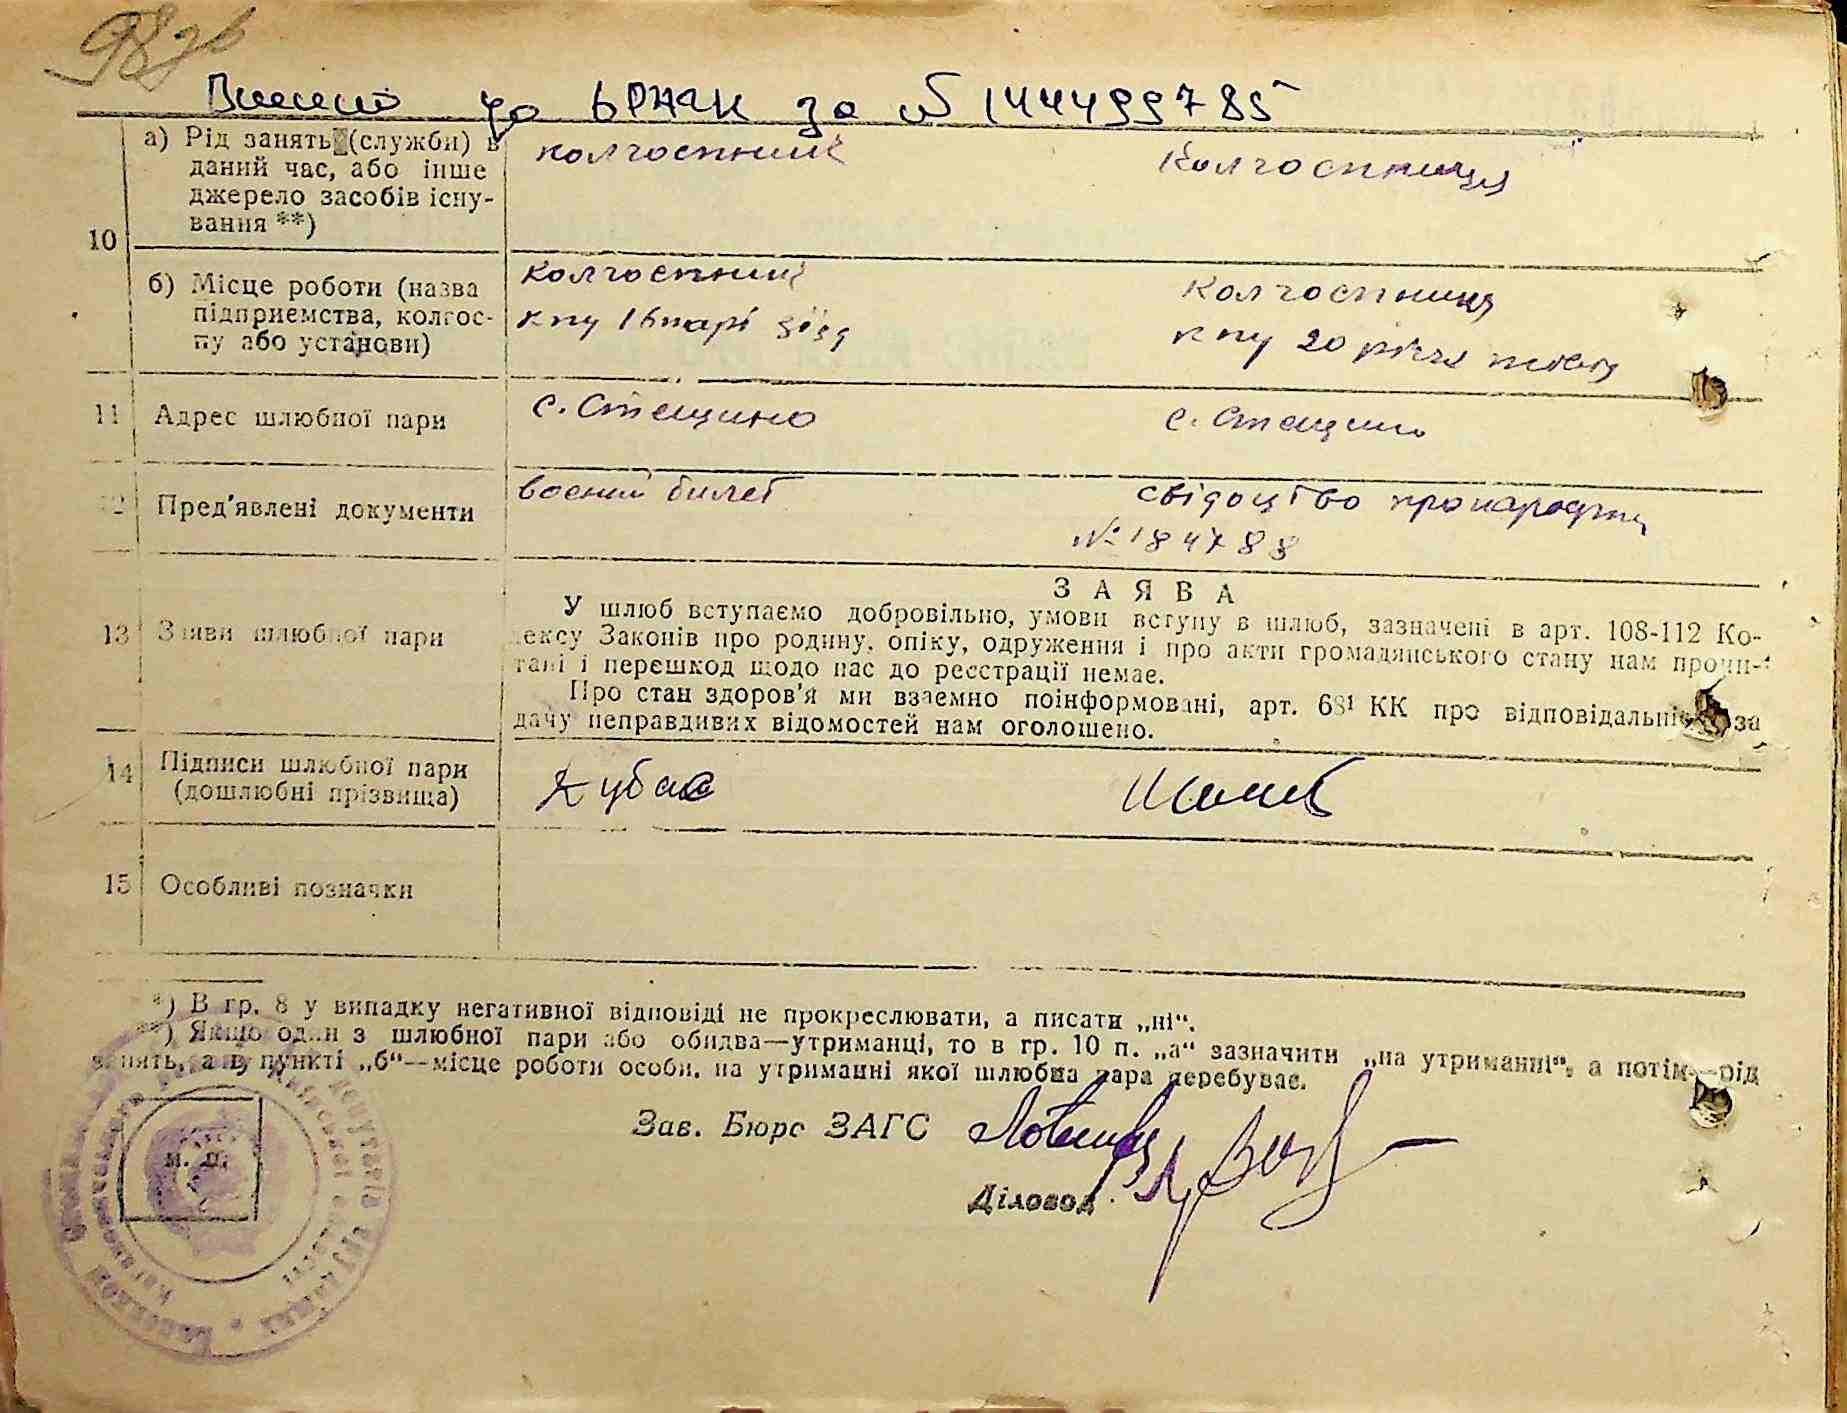 987в
Внесено до БРАЧК за № 1444997 85
10
а) Рід занять (служби) в
даний час, або інше
джерело засобів існу-
вання **)
колгоспник
Колгоспниця
б) Місце роботи (назва
підприємства, колгос-
пу або установи)
Колгоспник
Колгоспниця
к-пу 16 парт зїзд
к-пу 20 річчя
11 Адрес шлюбної пари
с. Стецино
с. Стецино
12 Пред'явлені документи
воєний билет
свідоцтво про народжен
№ 184788
13 Заяви шлюбної пари
ЗАЯВА
У шлюб вступаємо добровільно, умови вступу в шлюб, зазначені в арт. 108-112 Ко-
дексу Законів про родину, опіку, одруження і про акти громадянського стану нам прочи-
тані і перешкод щодо нас до реєстрації немає.
Про стан здоров'я ми взаємно поінформовані, арт. 68¹ КК про відповідальність за
дачу неправдивих відомостей нам оголошено.
14 Підписи шлюбної пари
(дошлюбні прізвища)
15 Особливі позначки
*) В гр. 8 у випадку негативної відповіді не прокреслювати, а писати „ні“.
**) Якщо один з шлюбної пари або обидва—утриманці, то в гр. 10 п. „а“ зазначити „на утриманні“, а потім—рід
занять, а в пункті „б“—місце роботи особи, на утриманні якої шлюбна пара перебуває.
Зав. Бюро ЗАГС
Діловод
м. п.